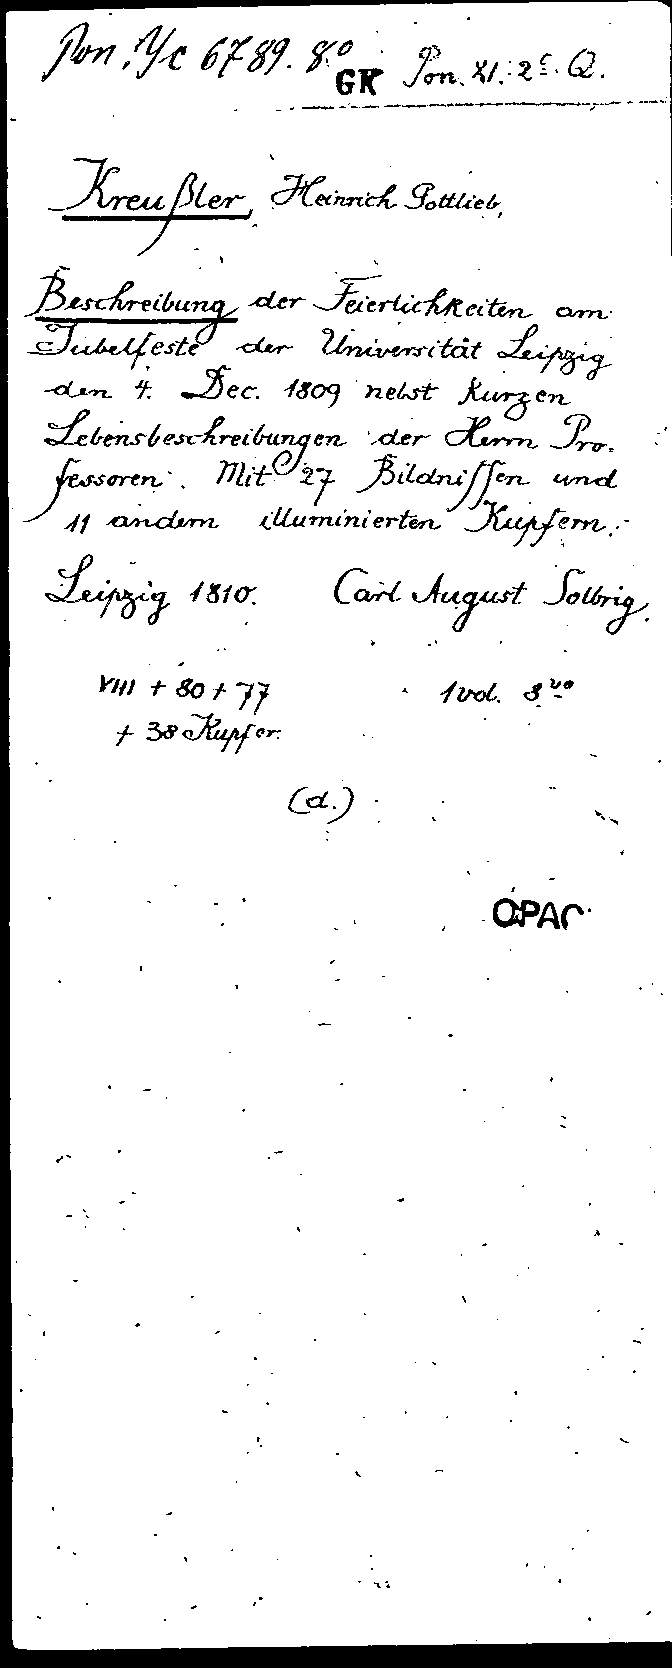 Pon. Yc 6789. 8°
GK Pon. XI. 2c. Q.
Kreußler, Heinrich Gottlieb,
Beschreibung der Feierlichkeiten am
Jubelfeste der Universität Leipzig
den 4. Dec. 1809 nebst kurzen
Lebensbeschreibungen der Herrn Pro-
fessoren. Mit 27 Bildnissen und
11 andern illuminierten Kupfern.
Leipzig 1810. Carl August Solbrig.
VIII + 80 + 77 1 vol. 8vo
+ 38 Kupfer.
(d.)
OPAC